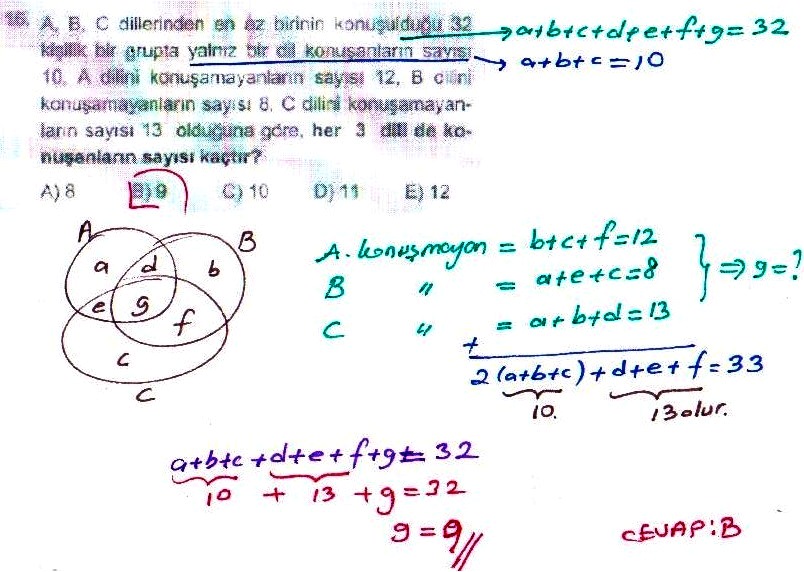 15. A, B, C dillerinden en az birinin konuşulduğu 32
kişilik bir grupta yalnız bir dil konuşanların sayısı
10, A dilini konuşamayanların sayısı 12, B dilini
konuşamayanların sayısı 8, C dilini konuşamayan-
ların sayısı 13 olduğuna göre, her 3 dili de ko-
nuşanların sayısı kaçtır?
A) 8 B) 9 C) 10 D) 11 E) 12
a+b+c+d+e+f+g=32
a+b+c=10
A
B
a d b
e g f
c
C
A. konuşmayan = b+c+f=12
B " = a+e+c=8
C " = a+b+d=13
⇒ g=?
+
2(a+b+c)+d+e+f=33
10. 13 olur.
a+b+c+d+e+f+g=32
10 + 13 + g=32
g=9//
CEVAP:B